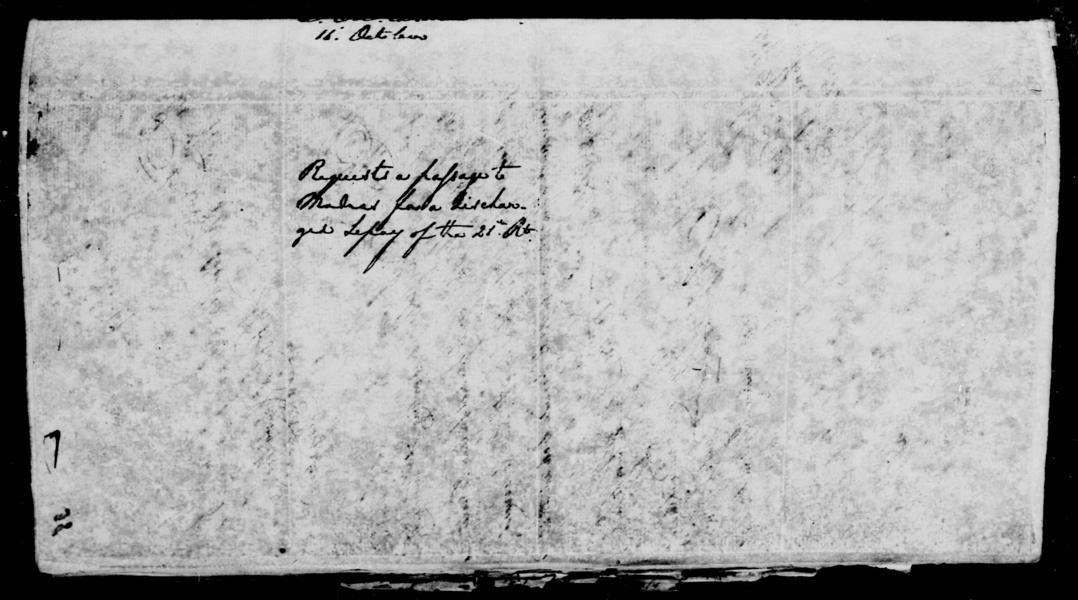 16. October
Requests a passage to
Madras for a dischar-
ged Sepoy of the 21st Rt.